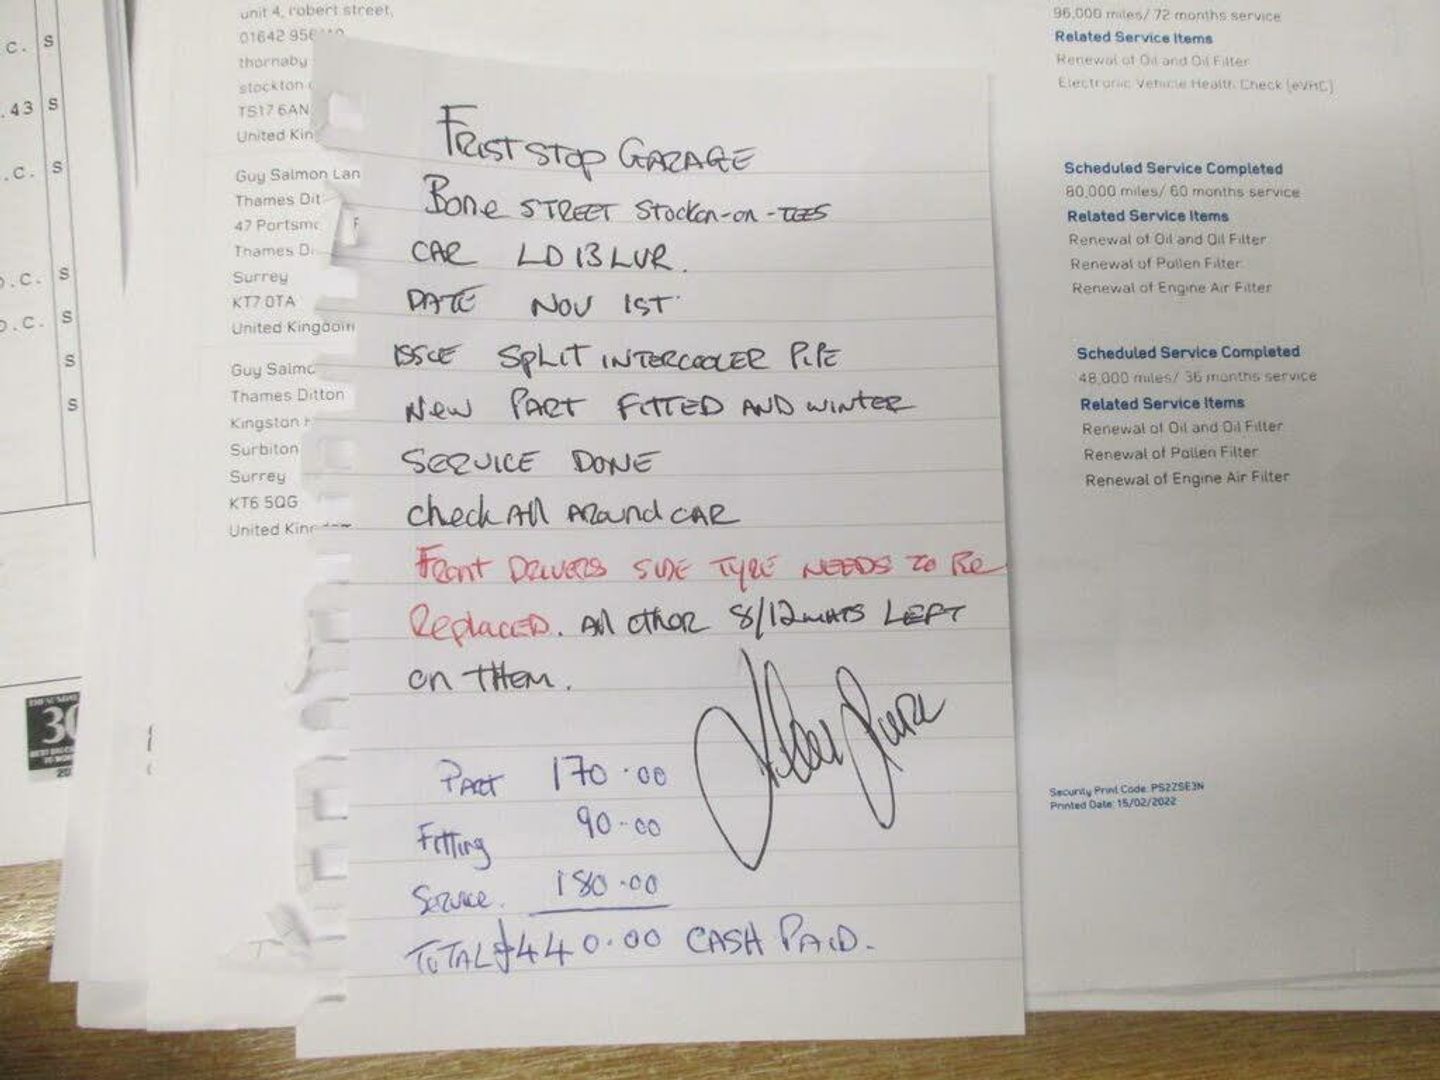 C. S
.43 S
.C. S
D.C. S
D.C. S
S
S
unit 4, robert street,
01642 956
thornaby
stockton
TS17 6AN
United Kin
Guy Salmon Lan
Thames Dit
47 Portsmo
Thames Di
Surrey
KT7 0TA
United Kingdom
Guy Salmo
Thames Ditton
Kingston
Surbiton
Surrey
KT6 5QG
United King
30
FRIST STOP GARAGE
Bone STREET Stockon-on-TEES
CAR LD13LUR.
DATE NOV 1ST
ISSUE SPLIT INTERCOOLER PIPE
NEW PART FITTED AND WINTER
SERVICE DONE
check All Around CAR
Front DRIVERS SIDE TYRE NEEDS TO Be
Replaced. All other 8/12 LEFT
on THEM.
PART 170.00
Fitting 90.00
Service. 180.00
TOTAL £440.00 CASH PAID.
96,000 miles/ 72 months service
Related Service Items
Renewal of Oil and Oil Filter
Electronic Vehicle Health Check (eVHC)
Scheduled Service Completed
80,000 miles/ 60 months service
Related Service Items
Renewal of Oil and Oil Filter
Renewal of Pollen Filter
Renewal of Engine Air Filter
Scheduled Service Completed
48,000 miles/ 36 months service
Related Service Items
Renewal of Oil and Oil Filter
Renewal of Pollen Filter
Renewal of Engine Air Filter
Security Print Code: PS2ZSE3N
Printed Date: 15/02/2022